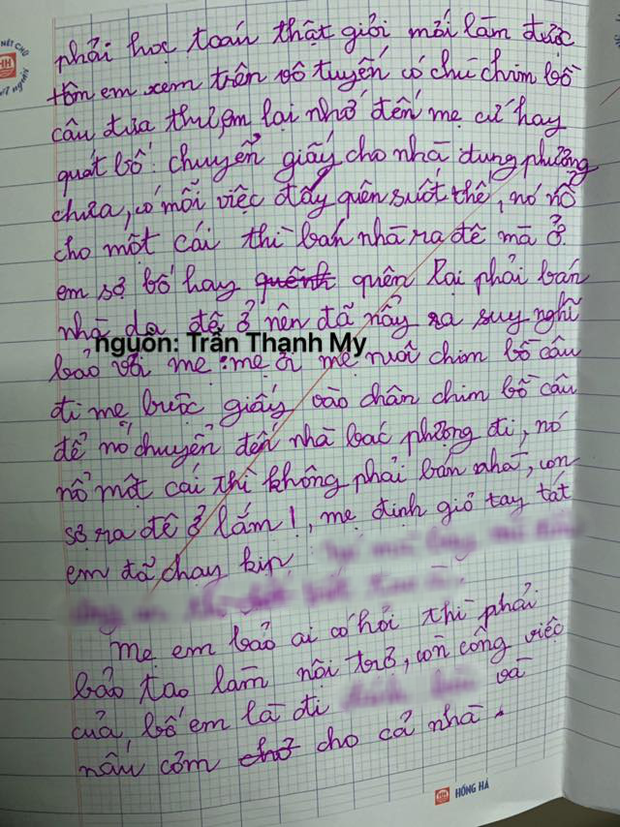 phải học toán thật giỏi mới làm được
hôm em xem trên vô tuyến có chú chim bồ
câu đưa thư, em lại nhớ đến mẹ cứ hay
quát bố: chuyển giấy cho nhà dung phượng
chưa, có mỗi việc đấy quên suốt thế, nó nổ
cho một cái thì bán nhà ra đê mà ở.
em sợ bố hay quênh quên lại phải bán
nhà da đê ở nên đã nảy ra suy nghĩ
nguồn: Trần Thạnh My
bảo với mẹ: mẹ ơi mẹ nuôi chim bồ câu
đi mẹ buộc giấy vào chân chim bồ câu
để nó chuyển đến nhà bác phượng đi, nó
nổ một cái thì không phải bán nhà, con
sợ ra đê ở lắm!, mẹ định giơ tay tát
em đã chạy kịp
Mẹ em bảo ai có hỏi thì phải
bảo tao làm nội trợ, còn công việc
của bố em là đi và
nấu cơm cho cả nhà.
HH HỒNG HÀ
NÉT CHỮ
HH